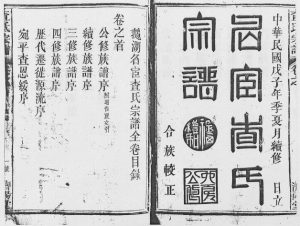 中華民國戊子年季夏月續修 日立
名宦查氏
宗譜
合族較正
湖名宦查氏宗譜全卷目錄
卷之首
公修族譜序
續修族譜序
三修族譜序
四修族譜序
歷代遷徙源流序
宛平查恩綬序